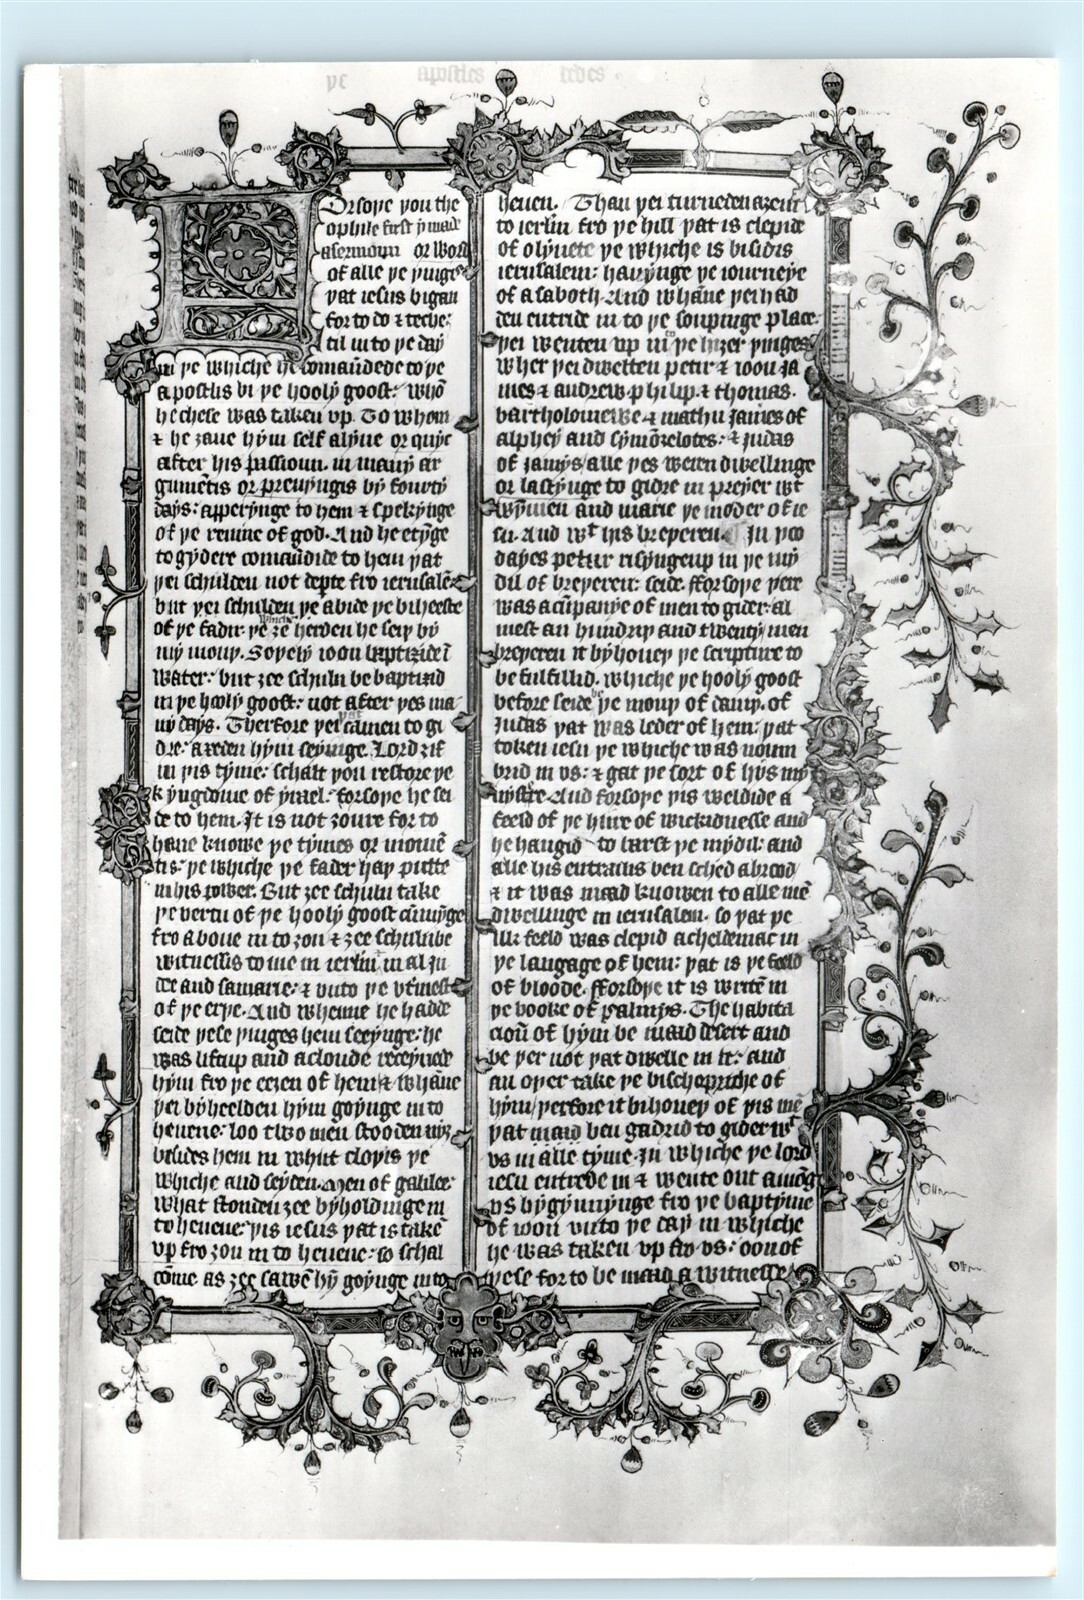 ye apostles dedes
Forsoye you the
ophile first y made
a sermoun or word
of alle ye yinges
yat iesus bigan
for to do & teche:
til in to ye day
in ye whiche he comaundede to ye
apostlis bi ye hooly goost: whō
he chese was taken vp. To whom
& he ȝaue hym self alyue or quyc
after his passioun. in many ar
gumētis or preuyngis by fourty
days: apperynge to hem & spekynge
of ye reume of god. And he etynge
to gydere comaūdide to hem yat
yei schulden not depte fro ierusalē:
but yei schulden ye abide ye biheeste
of ye fadir ye whiche ȝe herden he sey by
my mouy. Soyely ioon baptiside ī
water: but ȝee schuln be baptisid
in ye hooly goost: not after yes ma
ny days. Therfore yei yat camen to gi
dre: axeden hym seyinge. Lord ȝif
in yis tyme: schalt you restore ye
kyngdome of yrael. forsoye he sei
de to hem. It is not ȝoure for to
haue knowe ye tymes or momē
tis: ye whiche ye fader hay putte
in his power. But ȝee schuln take
ye vertu of ye hooly goost cūmynge
fro aboue in to ȝou & ȝee schul be
witnessis to me in ierlm in al iu
dee and samarie: & vnto ye vtmest
of ye erye. And whenne he hadde
seide yese yinges hem seeynge: he
was lift up and a cloude receyuede
hym fro ye eeȝen of hem & whāne
yei byheelden hym goynge in to
heuene: loo two men stooden nyȝ
besides hem in whijt cloyis ye
whiche and seyden. Men of galilee:
what stonden ȝee byholdinge in
to heuene yis iesus yat is takē
vp fro ȝou in to heuene: so schal
come as ȝee sawē hy goynge in to
heuen. Than yei turneden aȝein
to ierlm fro ye hill yat is clepide
of olyuete ye whiche is bisidis
ierusalem: hauynge ye iourneye
of a saboth. And whāne yei had
den entride in to ye soupinge place
yei wenten vp in to ye hiȝer yinges
wher yei dwelten petir & ioon ja
mes & andrew philip. & thomas.
bartholomewe & mathu James of
alphey and symō zelotes: & Judas
of jamys/ alle yes weren dwellinge
or lastynge to gidre in preyer wt
wymen and marie ye moder of ie
su. And wt his breyeren. In yoo
dayes petur risynge up in ye my
dil of breyeren: seide. fforsoye yere
was a cūpanye of men to gider: al
mest an hundriy and twenty men
breyeren it byhouey ye scripture to
be fulfillid. whiche ye hooly goost
before seide be ye mouy of dauiy. of
Judas yat was leder of hem: yat
token iesu ye whiche was noum
brid in vs: & gat ye sort of hys my
nystre. And forsoye yis weldide a
feeld of ye hire of wickidnesse and
he hangid to barst ye mydil: and
alle his entrailis ben sched abrood
& it was maad knowen to alle mē
dwellinge in ierusalem. so yat ye
ilk feeld was clepid acheldemac in
ye langage of hem: yat is ye feeld
of bloode. fforsoye it is writē in
ye booke of psalmys. The habita
cioū of hym be maad desert and
be yer not yat dwelle in it: and
an oyer take ye bischopriche of
hym/ yerfore it bihouey of yis mē
yat maad ben gadrid to gider wt
vs in alle tyme. In whiche ye lord
iesu entrede in & wente out amōg
vs bygynnynge fro ye baptyme
of ioon vnto ye day in whiche
he was taken vp fro vs: oon of
yese for to be maad a witnesse